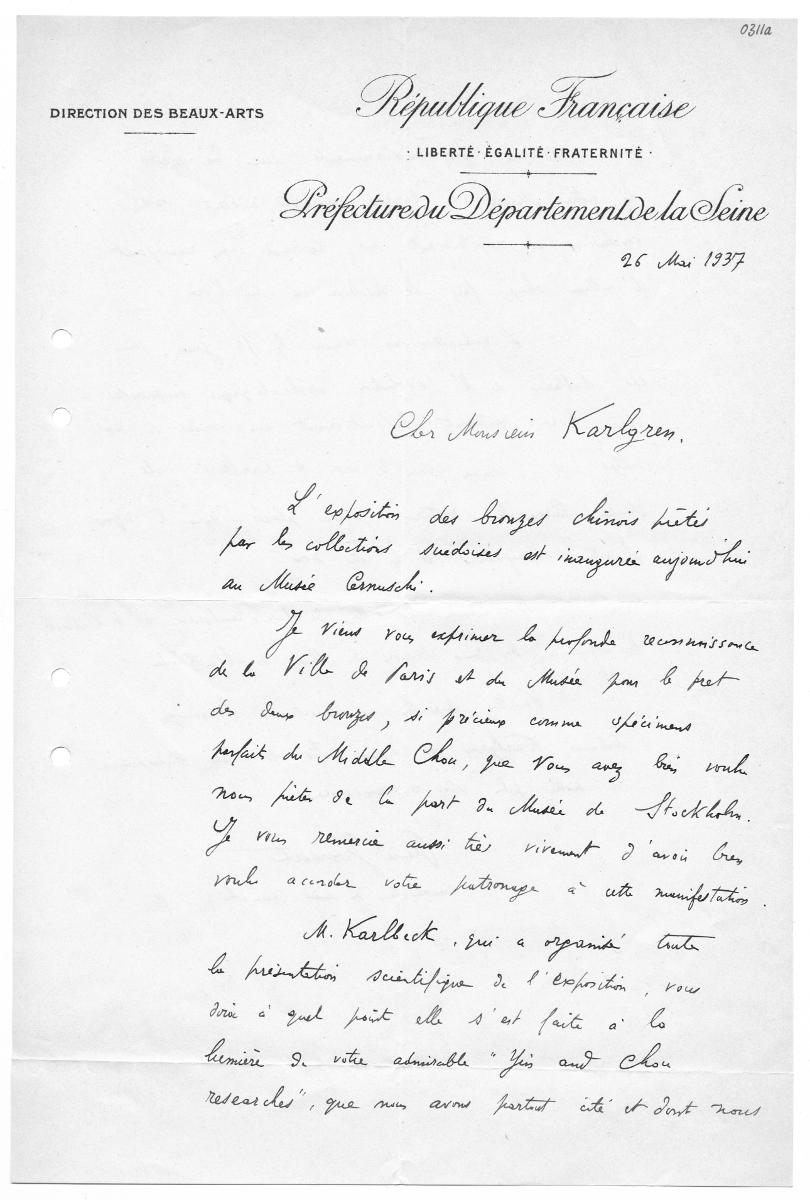 0311a
DIRECTION DES BEAUX-ARTS
République Française
LIBERTÉ · ÉGALITÉ · FRATERNITÉ ·
Préfecture du Département de la Seine
26 Mai 1937
Cher Monsieur Karlgren,
L'exposition des bronzes chinois prêtés
par les collections suédoises est inaugurée aujourd'hui
au Musée Cernuschi.
Je viens vous exprimer la profonde reconnaissance
de la Ville de Paris et du Musée pour le pret
des deux bronzes, si précieux comme spécimens
parfaits du Middle Chou, que vous avez bien voulu
nous prêter de la part du Musée de Stockholm.
Je vous remercie aussi très vivement d'avoir bien
voulu accorder votre patronage à cette manifestation.
M. Karlbeck, qui a organisé toute
la présentation scientifique de l'exposition, vous
dira à quel point elle s'est faite à la
lumière de votre admirable "Yin and Chou
researches", que nous avons partout cité et dont nous